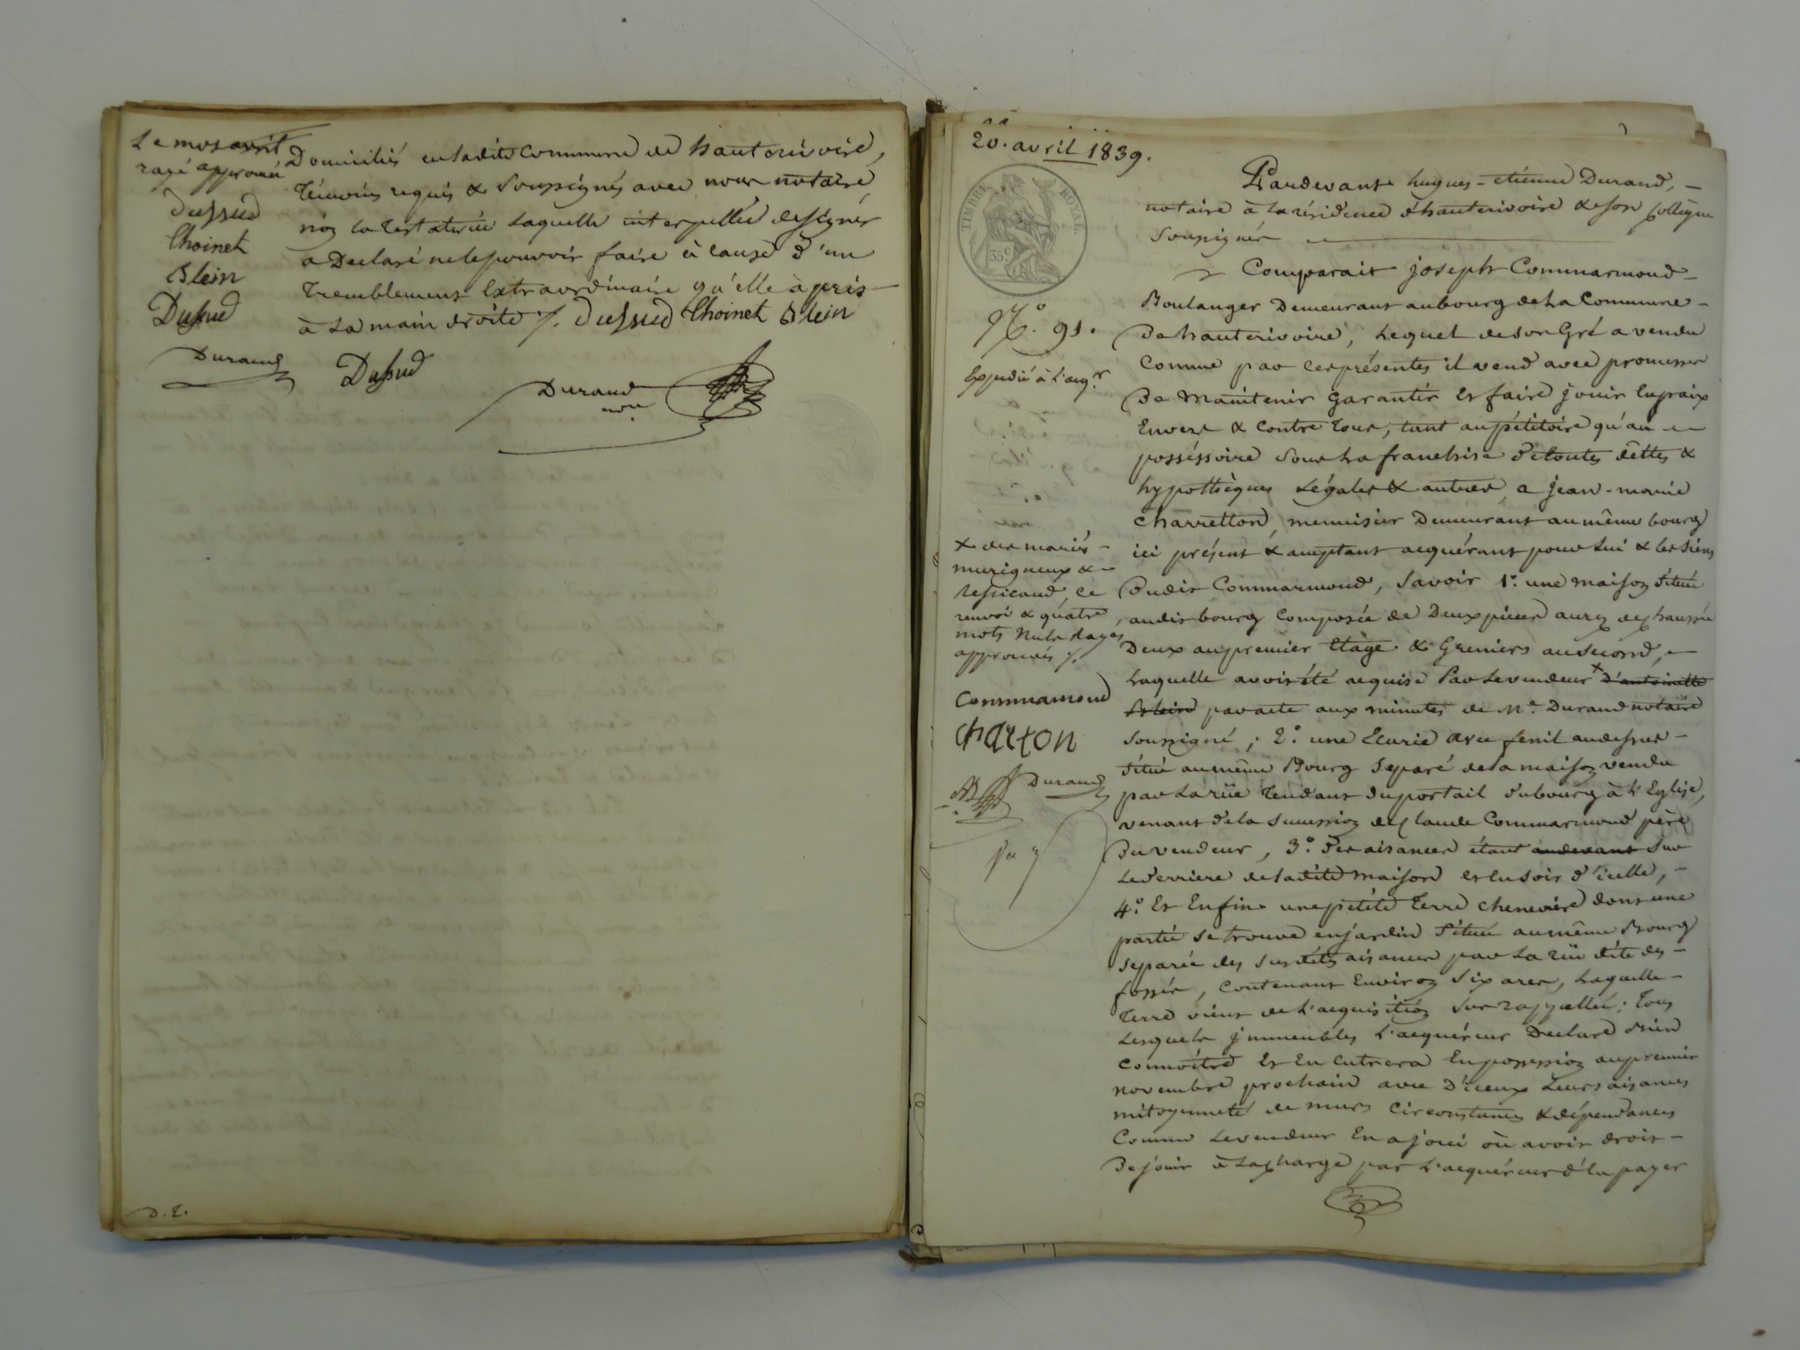 Le mot avril
rayé approuvé
Dussud
Choinet
Blein
Dussud
Durand
Domiciliés en ladite Commune de hauterivoire,
témoins requis & Soussignés avec nous notaire
non la testatrice laquelle interpellée de signer
a Déclaré ne le pouvoir faire à cause d'un
tremblement Extraordinaire qu'elle à pris
à la main droite /. Dussud Choinet Blein
Dussud
Durand
nre
D. E.
20. avril 1839.
TIMBRE ROYAL
35 c
Pardevant hugues-étienne Durand, -
notaire à la résidence d'hauterivoire & son collègue
Soussignés
Comparait joseph Commarmond -
Boulanger Demeurant au bourg de La Commune -
De hauterivoire, Lequel de son Gré a vendu
Comme par ces présentes il vend avec promesse
De Maintenir Garantir Et faire jouir En paix
Envers & Contre tous, tant au pétitoire qu'au
posséssoire sous La franchise de toutes dettes &
hypothèques Légales & autres, a jean-marie
Charretton, menuisier Demeurant au même bourg
ici présent & acceptant acquérant pour Lui & les Siens
Dudit Commarmond, Savoir 1.° une maison Située
audit bourg Composée de Deux pièces au rez de chaussée
Deux au premier Etage & Greniers au Second, -
Laquelle avoir été acquise Par Le vendeur x d'antoinette
Blein par acte aux minutes de Me. Durand notaire
Soussigné ; 2.° une Ecurie avec fenil au dessus -
Située au même Bourg Separé de la maison vendue
par La rüe Tendant du portail du bourg à l'Eglise,
venant de la Succession de Claude Commarmond père
Du vendeur, 3.° Des aisances étant au devant Sur
Le derriere de ladite maison et au soir d'icelle, -
4.° Et Enfin une petite Terre cheneviere dont une
partie se trouve en jardin Située au même Bourg
Separée des susdites aisances par La rüe dite des -
fossés, Contenant Environ Six ares, Laquelle -
Terre vient de L'acquisition Sus rappellée ; Tous
Lesquels jmmeubles L'acquéreur Declare bien
Connoître Et En Entrera En possession au premier
novembre prochain avec D'iceux Leurs aisances
mitoyenneté de murs Circonstances & dépendances
Comme Le vendeur En a joui où avoit droit -
De jouir à La charge par L'acquéreur d'En payer
N.° 91.
Expédié à l'aqr.
x des mariés -
murigneux & -
ce
renvoi & quatre
mots Nuls rayés
approuvés /.
Commarmond
Charton
Durand